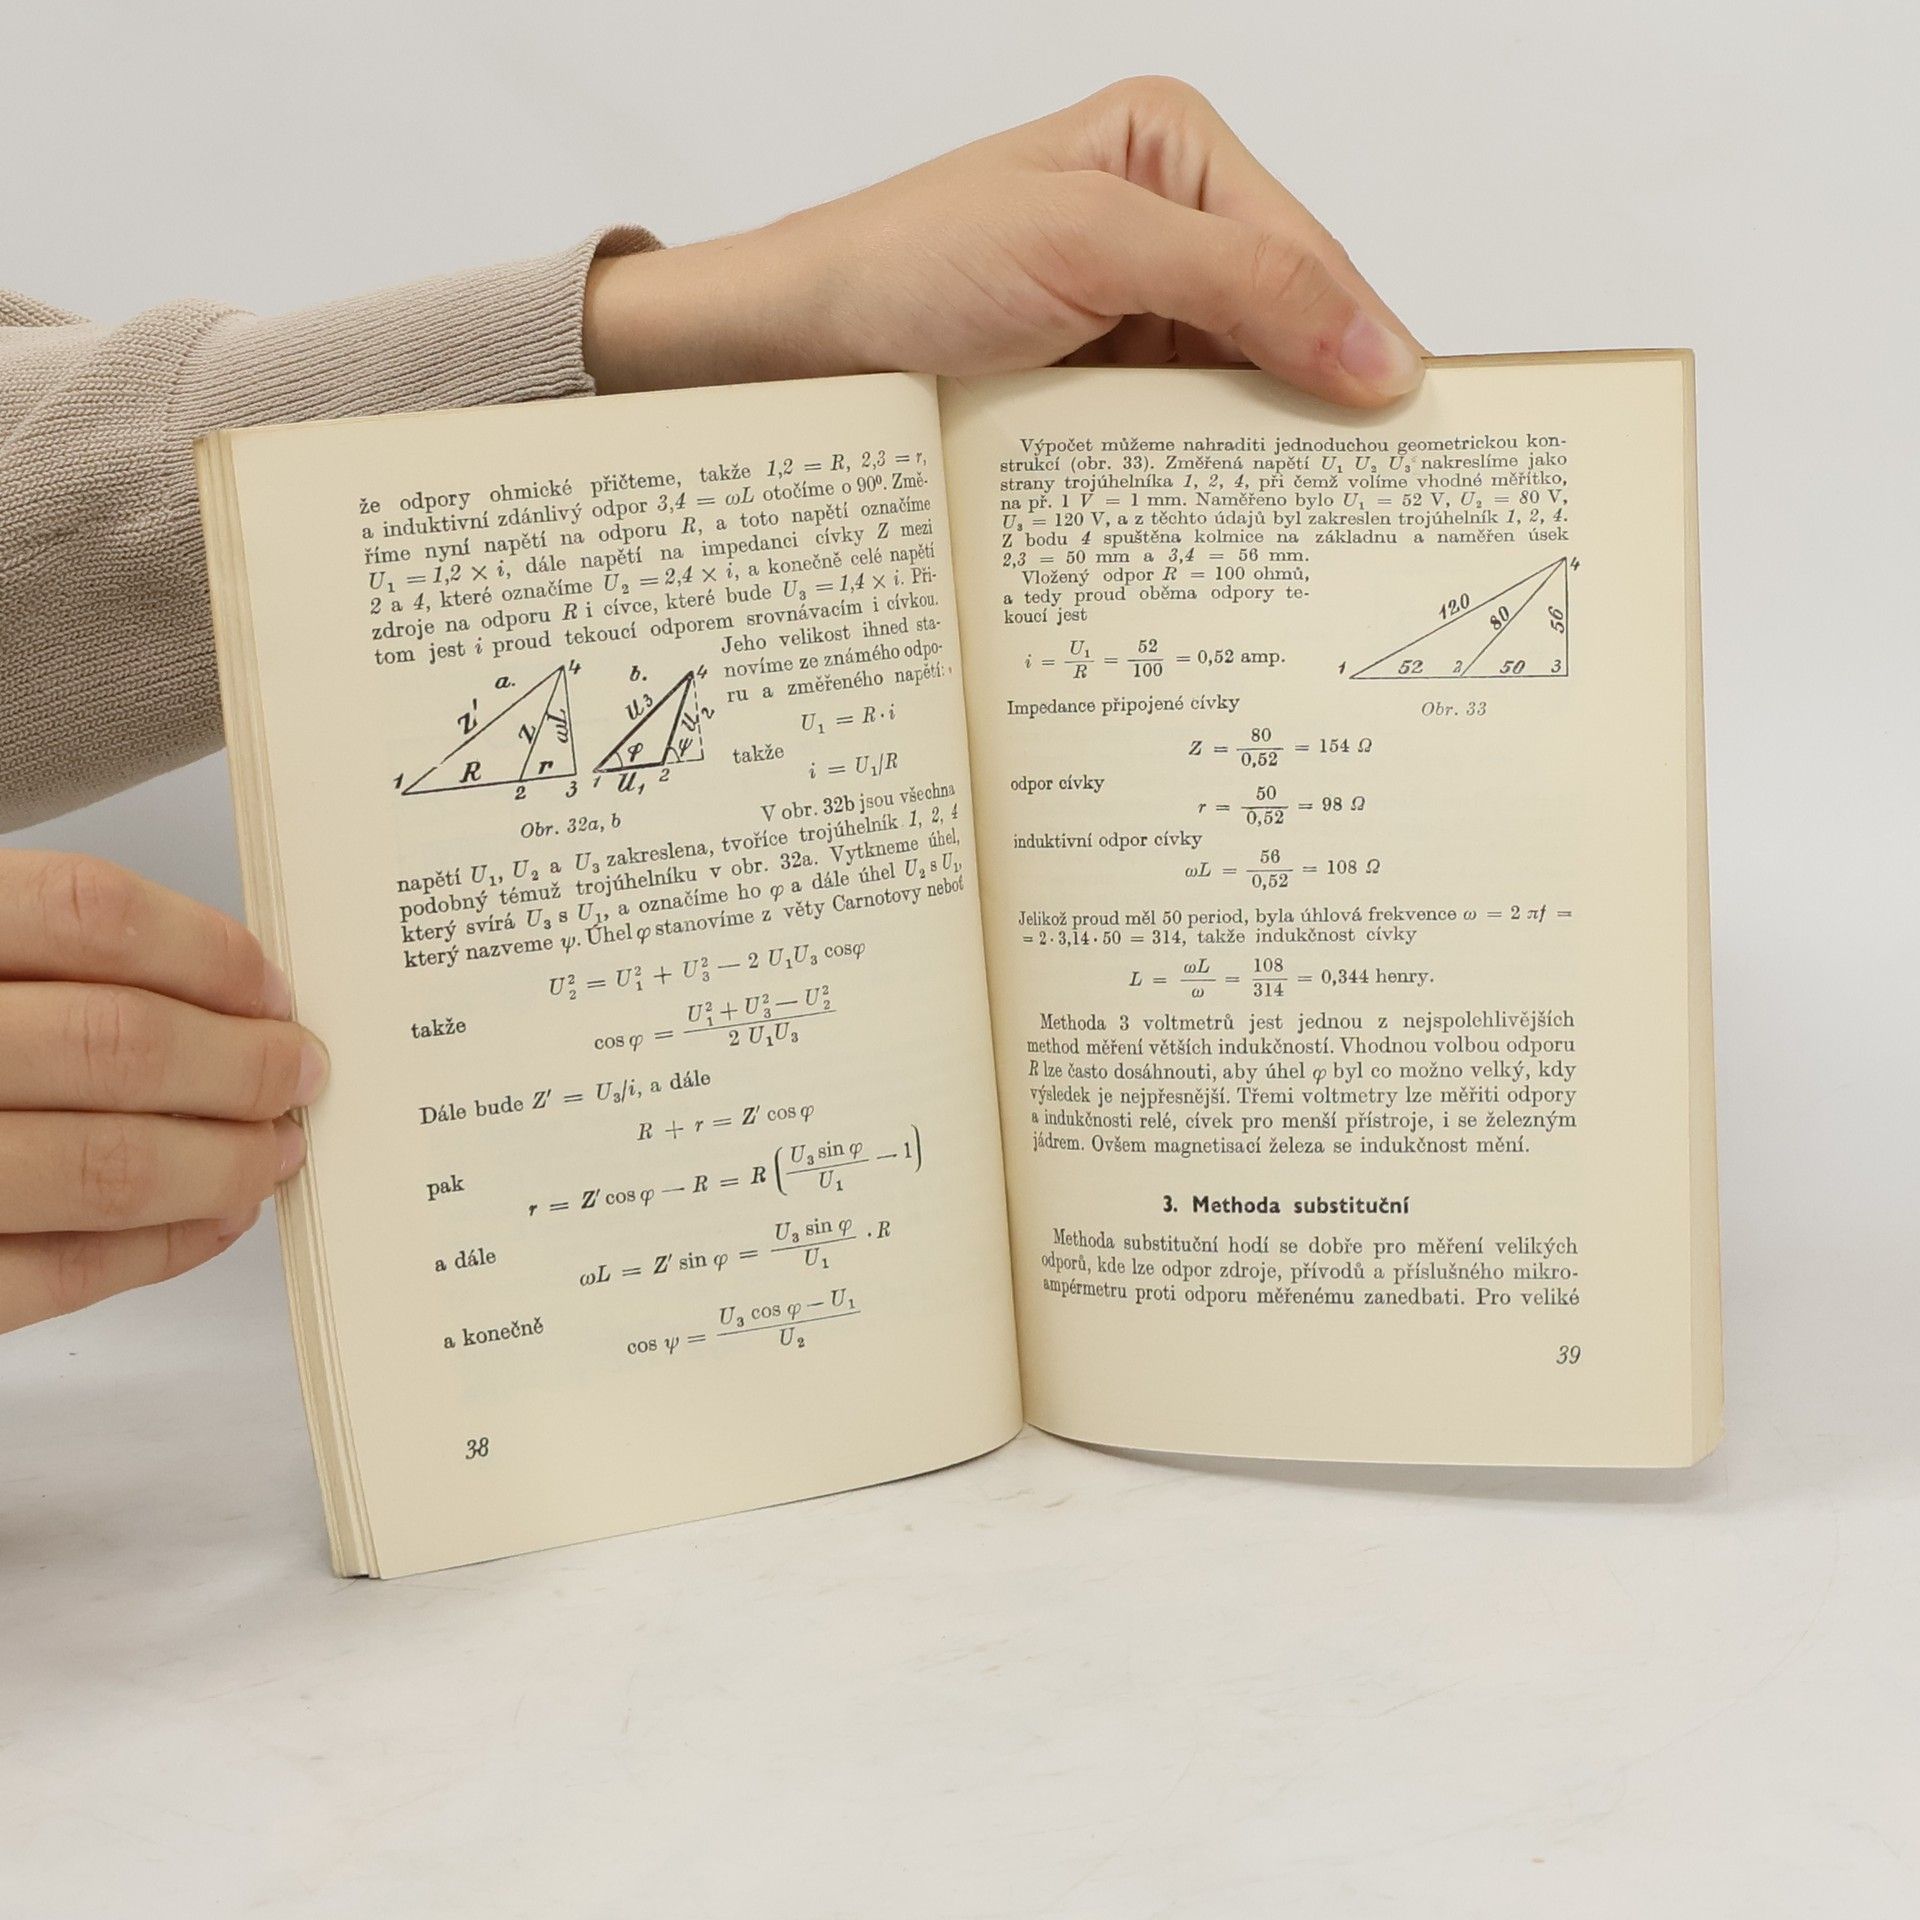 že odpory ohmické přičteme, takže 1,2 = R, 2,3 = r,
a induktivní zdánlivý odpor 3,4 = ωL otočíme o 90⁰. Změ-
říme nyní napětí na odporu R, a toto napětí označíme
U₁ = 1,2 × i, dále napětí na impedanci cívky Z mezi
2 a 4, které označíme U₂ = 2,4 × i, a konečně celé napětí
zdroje na odporu R i cívce, které bude U₃ = 1,4 × i. Při-
tom jest i proud tekoucí odporem srovnávacím i cívkou.
Jeho velikost ihned sta-
novíme ze známého odpo-
ru a změřeného napětí:
U₁ = R·i
takže
i = U₁/R
a.
Z'
Z
ωL
R
r
1
2
3
4
b.
U₃
U₂
U₁
φ
ψ
1
2
4
Obr. 32a, b
V obr. 32b jsou všechna
napětí U₁, U₂ a U₃ zakreslena, tvoříce trojúhelník 1, 2, 4
podobný témuž trojúhelníku v obr. 32a. Vytkneme úhel,
který svírá U₃ s U₁, a označíme ho φ a dále úhel U₂ s U₁,
který nazveme ψ. Úhel φ stanovíme z věty Carnotovy neboť
U₂² = U₁² + U₃² — 2 U₁U₃ cosφ
takže
cos φ = (U₁² + U₃² — U₂²) / (2 U₁U₃)
Dále bude Z' = U₃/i, a dále
R + r = Z' cos φ
pak
r = Z' cos φ — R = R (U₃ sin φ / U₁ — 1)
a dále
ωL = Z' sin φ = U₃ sin φ / U₁ . R
a konečně
cos ψ = (U₃ cos φ — U₁) / U₂
38
Výpočet můžeme nahraditi jednoduchou geometrickou kon-
strukcí (obr. 33). Změřená napětí U₁ U₂ U₃ nakreslíme jako
strany trojúhelníka 1, 2, 4, při čemž volíme vhodné měřítko,
na př. 1 V = 1 mm. Naměřeno bylo U₁ = 52 V, U₂ = 80 V,
U₃ = 120 V, a z těchto údajů byl zakreslen trojúhelník 1, 2, 4.
Z bodu 4 spuštěna kolmice na základnu a naměřen úsek
2,3 = 50 mm a 3,4 = 56 mm.
Vložený odpor R = 100 ohmů,
a tedy proud oběma odpory te-
koucí jest
i = U₁/R = 52/100 = 0,52 amp.
120
80
56
52
50
1
2
3
4
Obr. 33
Impedance připojené cívky
Z = 80/0,52 = 154 Ω
odpor cívky
r = 50/0,52 = 98 Ω
induktivní odpor cívky
ωL = 56/0,52 = 108 Ω
Jelikož proud měl 50 period, byla úhlová frekvence ω = 2 πf =
= 2·3,14·50 = 314, takže indukčnost cívky
L = ωL/ω = 108/314 = 0,344 henry.
Methoda 3 voltmetrů jest jednou z nejspolehlivějších
method měření větších indukčností. Vhodnou volbou odporu
R lze často dosáhnouti, aby úhel φ byl co možno velký, kdy
výsledek je nejpřesnější. Třemi voltmetry lze měřiti odpory
a indukčnosti relé, cívek pro menší přístroje, i se železným
jádrem. Ovšem magnetisací železa se indukčnost mění.
3. Methoda substituční
Methoda substituční hodí se dobře pro měření velikých
odporů, kde lze odpor zdroje, přívodů a příslušného mikro-
ampérmetru proti odporu měřenému zanedbati. Pro veliké
39